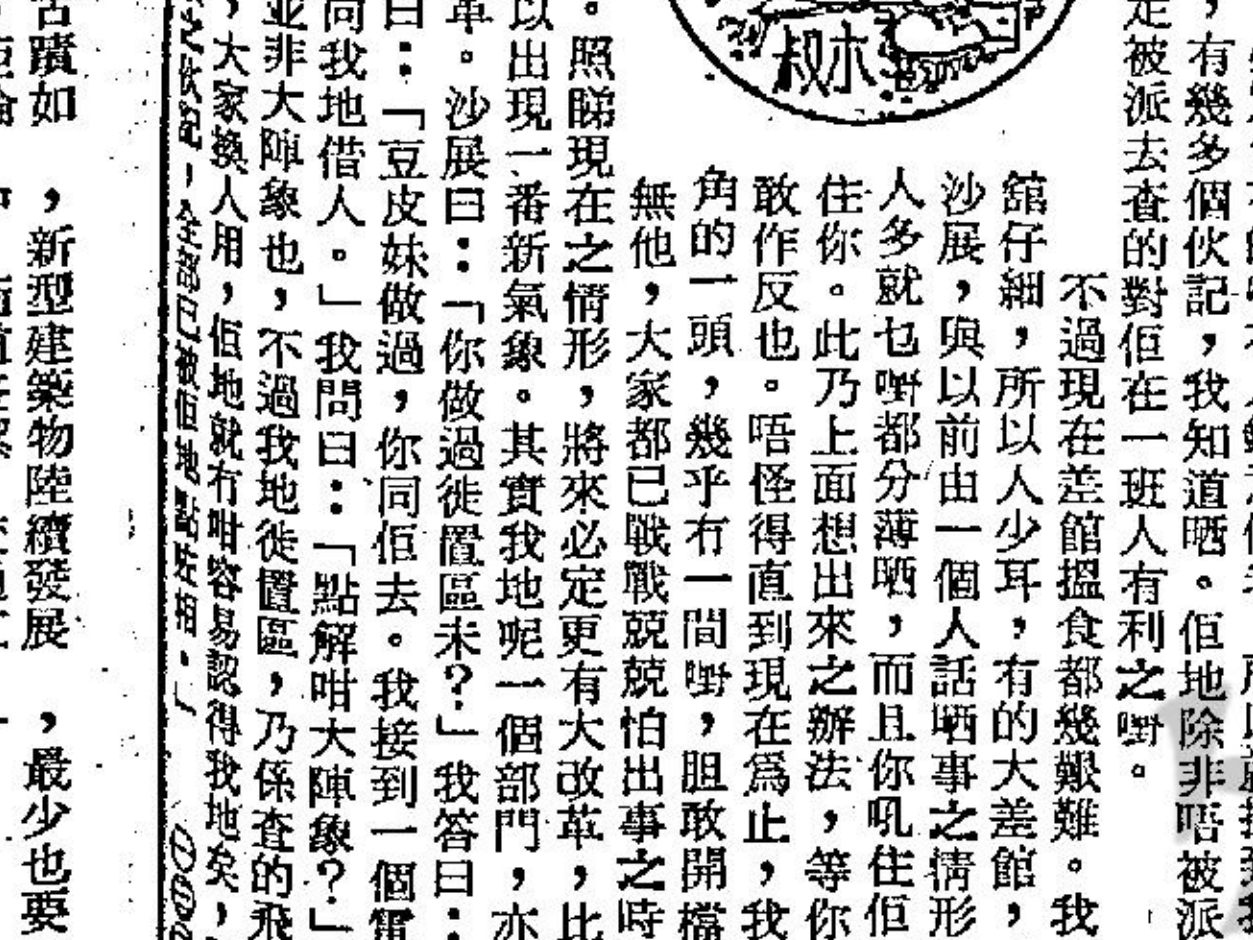 ，有幾多個伙記，我知道晒。佢地除非唔被派
定被派去查的對佢在一班人有利之嘢。
不過現在差館搵食都幾艱難。我
舘仔細，所以人少耳，有的大差館，
沙展，與以前由一個人話晒事之情形
人多就乜嘢都分薄晒，而且你吼住佢
住你。此乃上面想出來之辦法，等你
敢作反也。唔怪得直到現在為止，我
角的一頭，幾乎冇一間嘢，胆敢開檔
無他，大家都已戰戰兢兢怕出事之時
木叔
。照睇現在之情形，將來必定更有大改革，比
以出現一番新氣象。其實我地呢一個部門，亦
革。沙展曰：「你做過徙置區未？」我答曰：
曰：「豆皮妹做過，你同佢去。我接到一個電
同我地借人。」我問曰：「點解咁大陣象？」
並非大陣象也，不過我地徙置區，乃係查的飛
，大家換人用，佢地就冇咁容易認得我地矣，
之伙記，全部已被佢地點咗相。」
，新型建築物陸續發展，最少也要
古蹟如